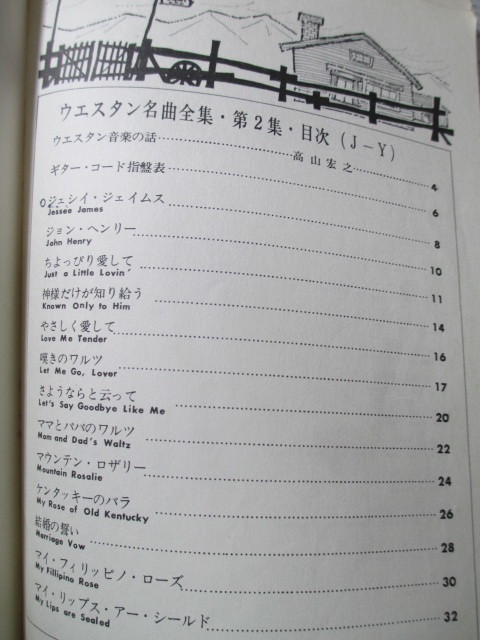 ウエスタン名曲全集・第2集・目次(J−Y)
ウエスタン音楽の話 高山宏之 4
ギター・コード指盤表 6
ジェシイ・ジェイムス 8
Jessee James
ジョン・ヘンリー 10
John Henry
ちょっぴり愛して 11
Just a Little Lovin'
神様だけが知り給う 14
Known Only to Him
やさしく愛して 16
Love Me Tender
嘆きのワルツ 17
Let Me Go, Lover
さようならと云って 20
Let's Say Goodbye Like Me
ママとパパのワルツ 22
Mom and Dad's Waltz
マウンテン・ロザリー 24
Mountain Rosalie
ケンタッキーのバラ 26
My Rose of Old Kentucky
結婚の誓い 28
Marriage Vow
マイ・フィリッピノ・ローズ 30
My Fillipino Rose
マイ・リップス・アー・シールド 32
My Lips are Sealed